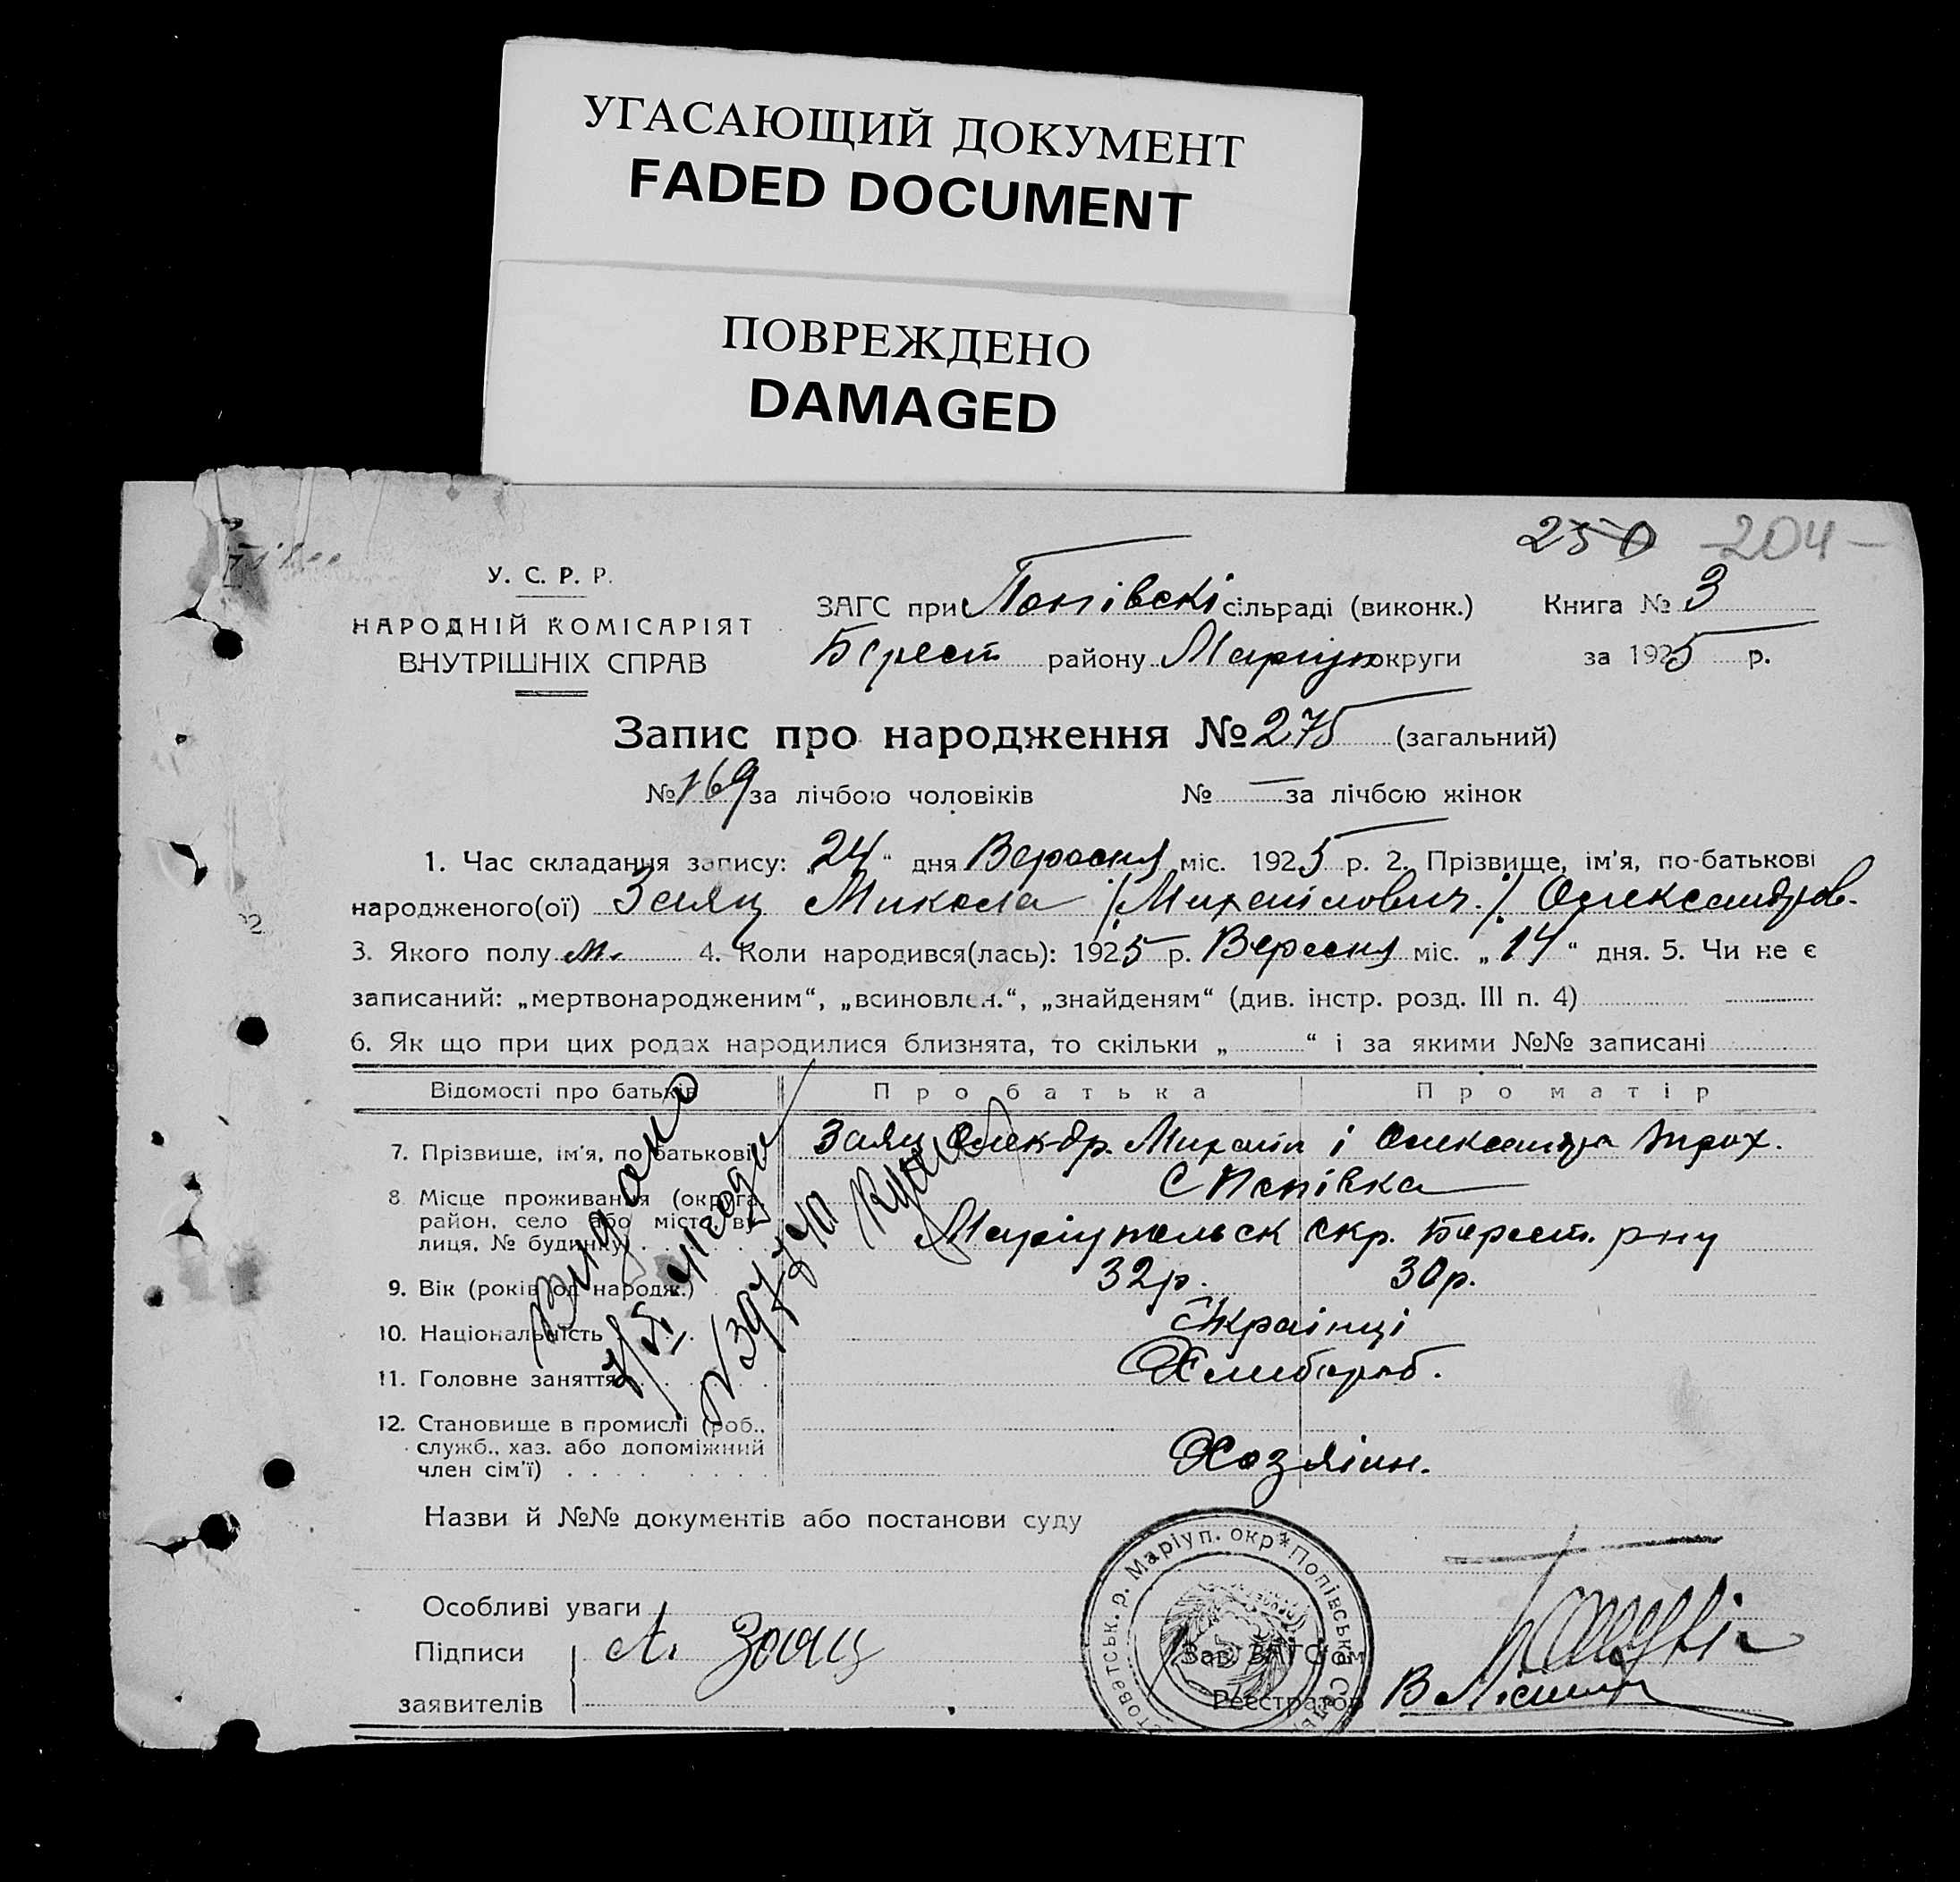 УГАСАЮЩИЙ ДОКУМЕНТ
FADED DOCUMENT
ПОВРЕЖДЕНО
DAMAGED
250 204
У. С. Р. Р.
НАРОДНІЙ КОМІСАРІЯТ
ВНУТРІШНІХ СПРАВ
ЗАГС при Попівскі сільраді (виконк.) Книга № 3
Берест району Маріуп округи за 1925 р.
Запис про народження № 275 (загальний)
№ 169 за лічбою чоловіків № — за лічбою жінок
1. Час складання запису: „24“ дня Вересня міс. 1925 р. 2. Прізвище, ім'я, по-батькові
народженого(ої) Заяц Микола /Михайлович./ Олександров.
3. Якого полу м. 4. Коли народився(лась): 1925 р. Вересня міс. „14“ дня. 5. Чи не є
записаний: „мертвонародженим“, „всиновлен.“, „знайденям“ (див. інстр. розд. III п. 4)
6. Як що при цих родах народилися близнята, то скільки „ “ і за якими №№ записані
Відомості про батьків Про батька Про матір
7. Прізвище, ім'я, по батькові Заяц Олек-др. Михайл і Олександра Трох.
8. Місце проживання (округа, с Попівка
район, село або місто, ву-
лиця, № будинку) Маріупольск окр. Берест. рну
9. Вік (років од народж.) 32р. 30р.
10. Національність Українці
11. Головне заняття Хлибороб.
12. Становище в промислі (роб.,
служб., хаз. або допоміжний
член сім'ї) Хозяїин.
Видано
Назви й №№ документів або постанови суду
Особливі уваги
Підписи А. Заяц Зав. ЗАГС'ом
заявителів Реєстратор В
товатськ. р. Маріуп. окр * Попівська Сіль